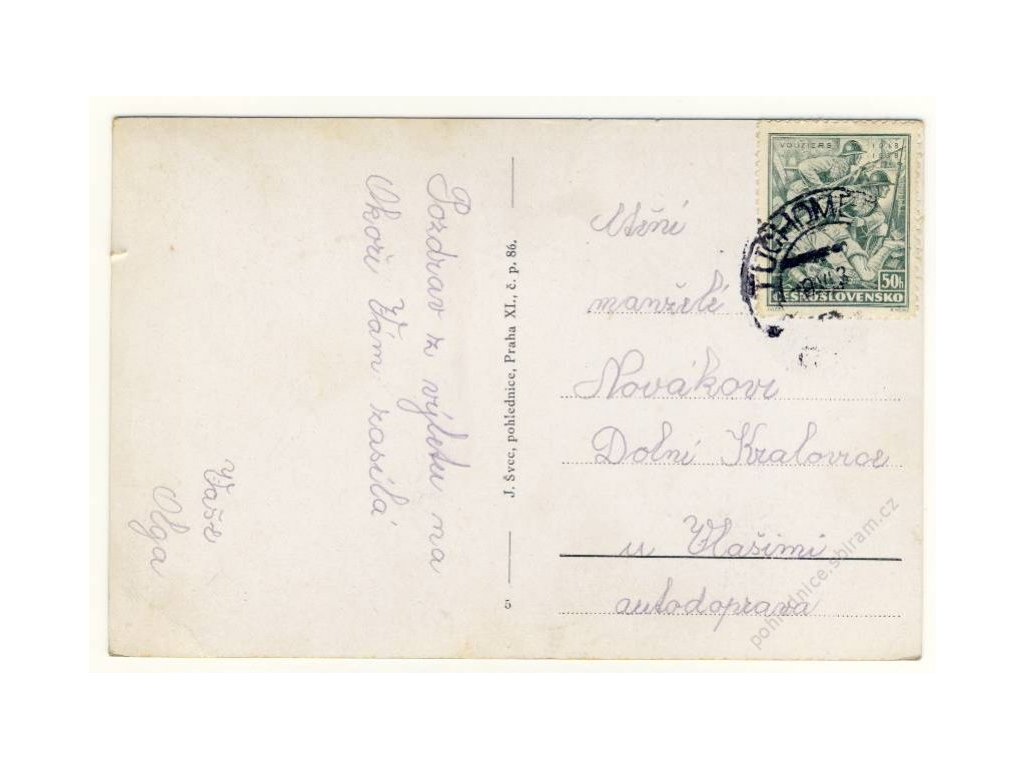 Pozdrav z výletu na
Okoři Vám zasílá
Vaše
Olga
J. Švec, pohlednice, Praha XI., č. p. 86.
5
VOUZIERS
1918
1938
50h
ČESKOSLOVENSKO
TUCHOMĚ
Ctění
manželé
Novákovi
Dolní Kralovice
u Vlašimi
autodoprava
pohlednice.sbiram.cz